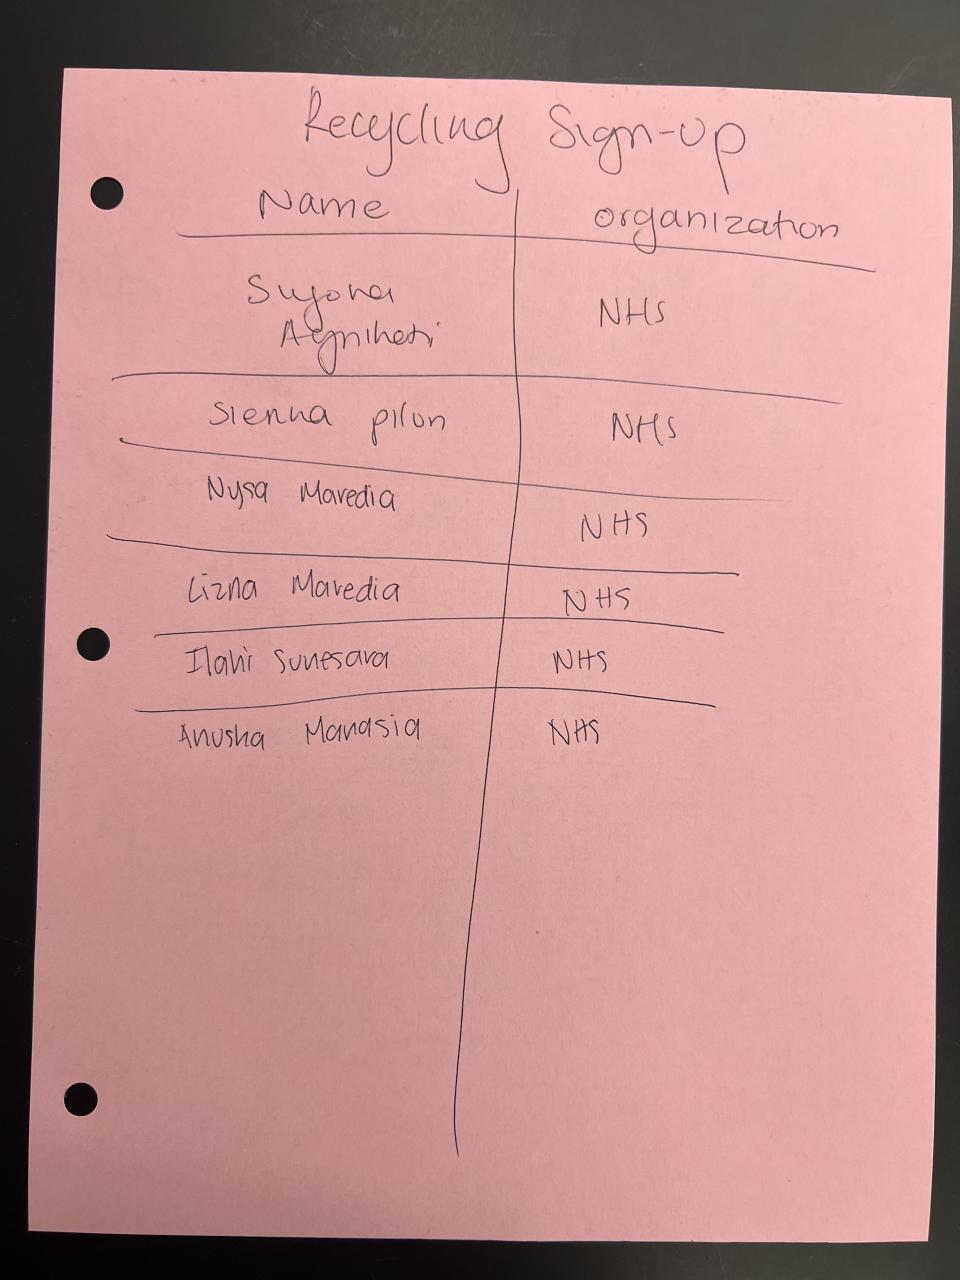 Recycling Sign-up
Name organization
Suyona
NHS
Sienna pilon NHS
Nysa Maredia
NHS
Lizna Maredia NHS
Ilahi Sunesara NHS
Anusha Manasia NHS